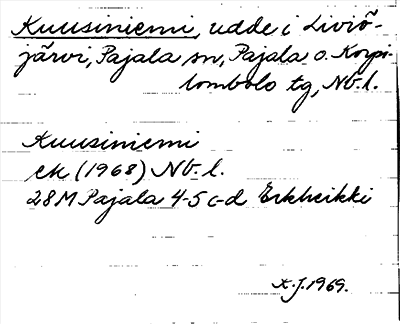 Kuusiniemi, udde i Liviö-
järvi, Pajala sn, Pajala o. Korpi-
lombolo tg, Nb. l.
Kuusiniemi
ek (1968) Nb. l.
28M Pajala 4-5 c-d Erkheikki
K.J. 1969.